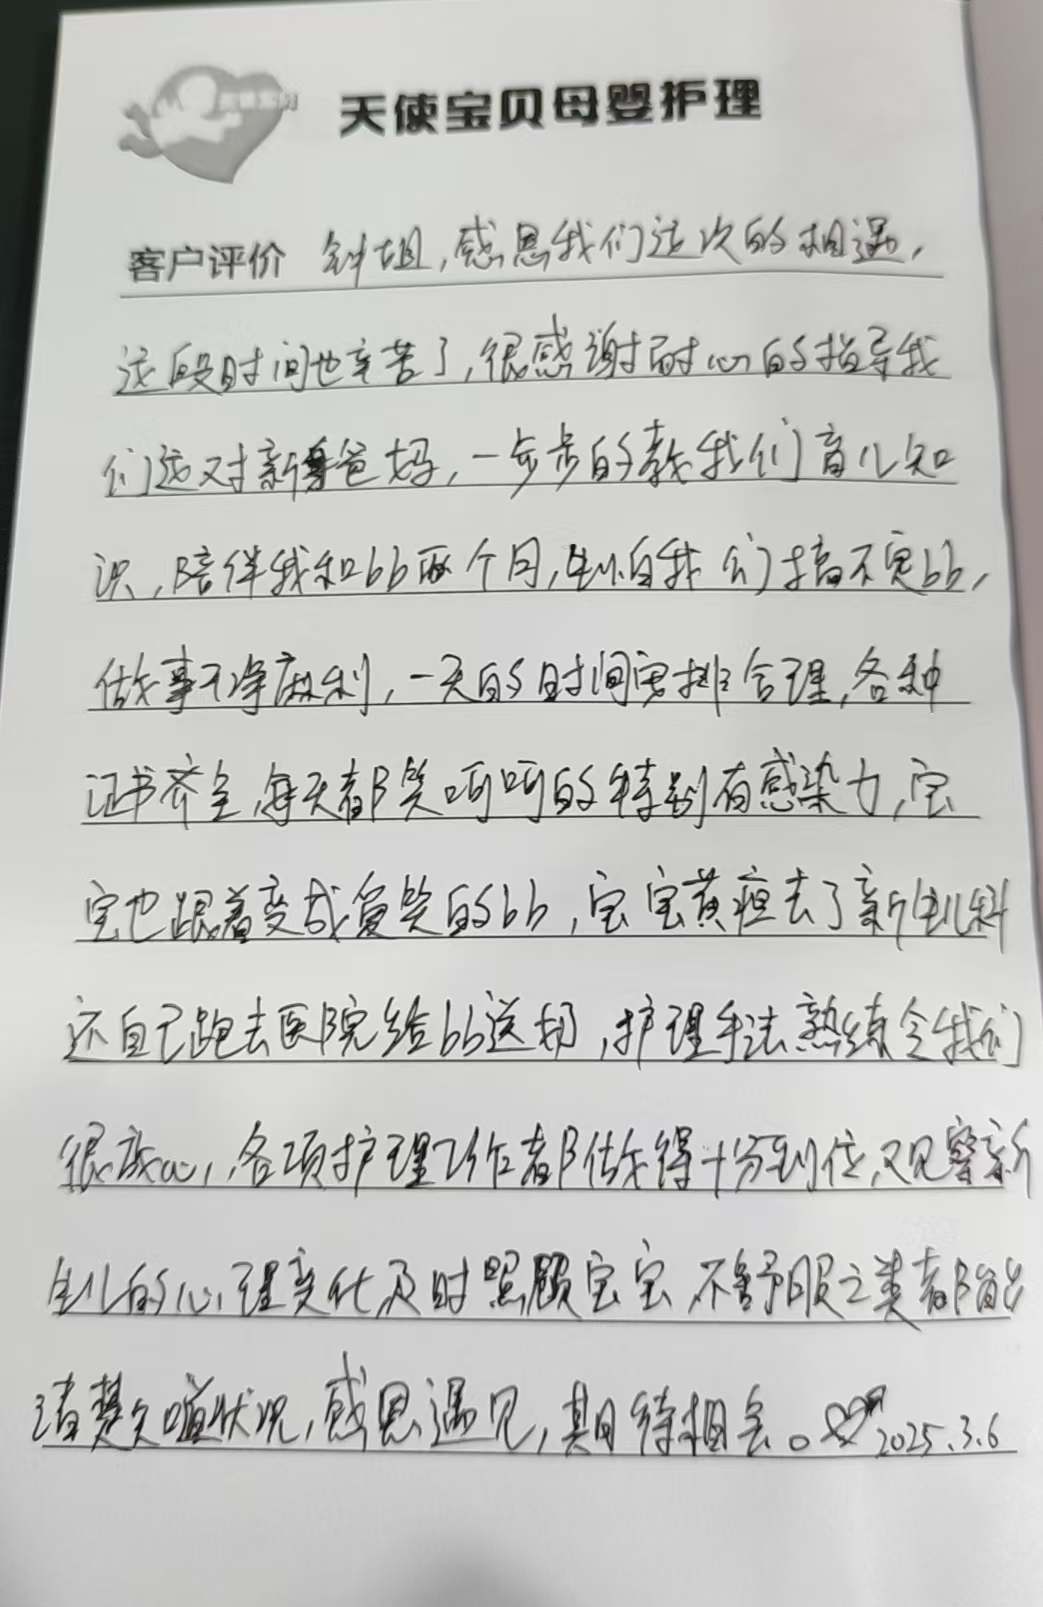 天使宝贝母婴护理
客户评价 钟姐,感恩我们这次的相遇,
这段时间也辛苦了,很感谢耐心的指导我
们这对新身爸妈,一步步的教我们育儿知
识,陪伴我和bb两个月,生怕我们搞不定bb,
做事干净麻利,一天的时间安排合理,各种
证书齐全,每天都笑呵呵的特别有感染力,宝
宝也跟着变成爱笑的bb,宝宝黄疸去了新生儿科
还自己跑去医院给bb送奶,护理手法熟练令我们
很放心,各项护理工作都做得十分到位,观察新
生儿的心理变化及时照顾宝宝,不舒服之类都能
清楚知道状况,感恩遇见,期待相会。2025.3.6